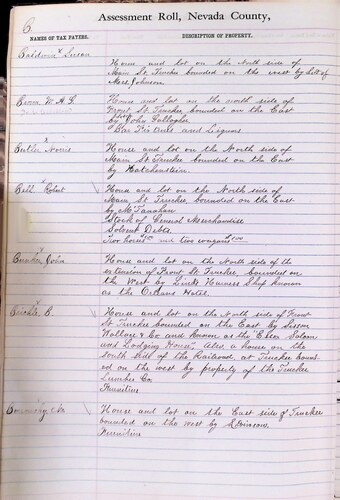 6
Assessment Roll, Nevada County,
NAMES OF TAX PAYERS.
DESCRIPTION OF PROPERTY.
Baldwin Susan
House and lot on the North side of
Main St. Truckee bounded on the west by lot of
Mrs. Johnson.
W. A. G.
House and lot on the north side of
Front St. Truckee bounded on the East
by John Gallagher
Bar Fixtures and Liquors
Butler Norris
House and lot on the North side of
Main St. Truckee bounded on the East
by Hatchenstein.
Bell Robert
House and lot on the North side of
Main St. Truckee, bounded on the East
by McTanahan
Stock of General Merchandise
Solvent Debts.
Two horses and two wagons
John
House and lot on the North side of the
extension of Front St. Truckee, bounded on
the West by Harness Shop known
as the Orleans Hotel.
C.
House and lot on the North side of Front
St Truckee bounded on the East by Sisson
Wallace & Co and known as the Saloon
and Lodging House. Also a house on the
South side of the Railroad, at Truckee bound
ed on the west by property of the Truckee
Lumber Co.
Furniture
House and lot on the East side of Truckee
bounded on the west by Robinson.
Furniture